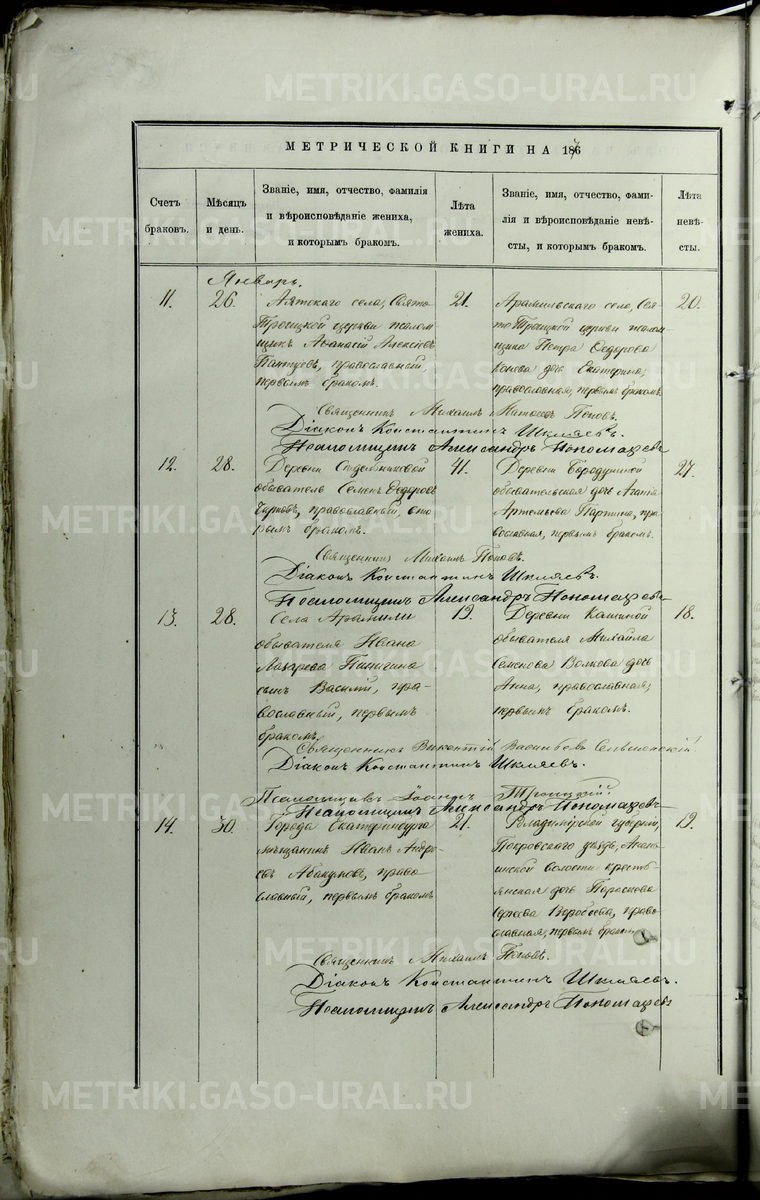 METRIKI.GASO-URAL.RU
МЕТРИЧЕСКОЙ КНИГИ НА 1876
Счетъ браковъ.
Мѣсяцъ и день.
Званіе, имя, отчество, фамилія
и вѣроисповѣданіе жениха,
и которымъ бракомъ.
Лѣта жениха.
Званіе, имя, отчество, фами-
лія и вѣроисповѣданіе невѣ-
сты, и которымъ бракомъ.
Лѣта невѣ-
сты.
Январь.
11. 26.
Аятскаго села, Свято
Троицкой церкви псалом
щикъ Аѳанасій Алексѣевъ
православный,
первымъ бракомъ.
21.
Арамильскаго села, Свя-
то Троицкой церкви псалом-
щика Петра Ѳедорова
дочь Екатерина,
православная, первымъ бракомъ.
20.
Священникъ Михаилъ Поповъ.
Діаконъ Константинъ Шкляевъ.
Псаломщикъ Александръ Пономаревъ
12. 28.
Деревни
обыватель Семенъ Ѳедоровъ
православный, вто
рымъ бракомъ.
41.
Деревни Бородулиной
обывательская дочь Агаѳья
Артемьева пра-
вославная, первымъ бракомъ.
27.
Священникъ Михаилъ Поповъ.
Діаконъ Константинъ Шкляевъ.
Псаломщикъ Александръ Пономаревъ
13. 28.
Села Арамили
обывателя Ивана
Лазарева Пинигина
сынъ Василій, пра-
вославный, первымъ
бракомъ.
19.
Деревни
обывателя Михаила
Семенова Волкова дочь
Анна, православная,
первымъ бракомъ.
18.
Священникъ Викентій Васильевъ
Діаконъ Константинъ Шкляевъ.
Псаломщикъ Іоаннъ Троицкій.
Псаломщикъ Александръ Пономаревъ
14. 30.
Города Екатеринбурга
мѣщанинъ Иванъ Андре-
евъ Абакумовъ, право
славный, первымъ бракомъ
21.
Владимірской губерніи,
Покровскаго уѣзда,
волости кресть-
янская дочь Параскова
Воробьева, право-
славная, первымъ бракомъ
19.
Священникъ Михаилъ Поповъ.
Діаконъ Константинъ Шкляевъ.
Псаломщикъ Александръ Пономаревъ
METRIKI.GASO-URAL.RU